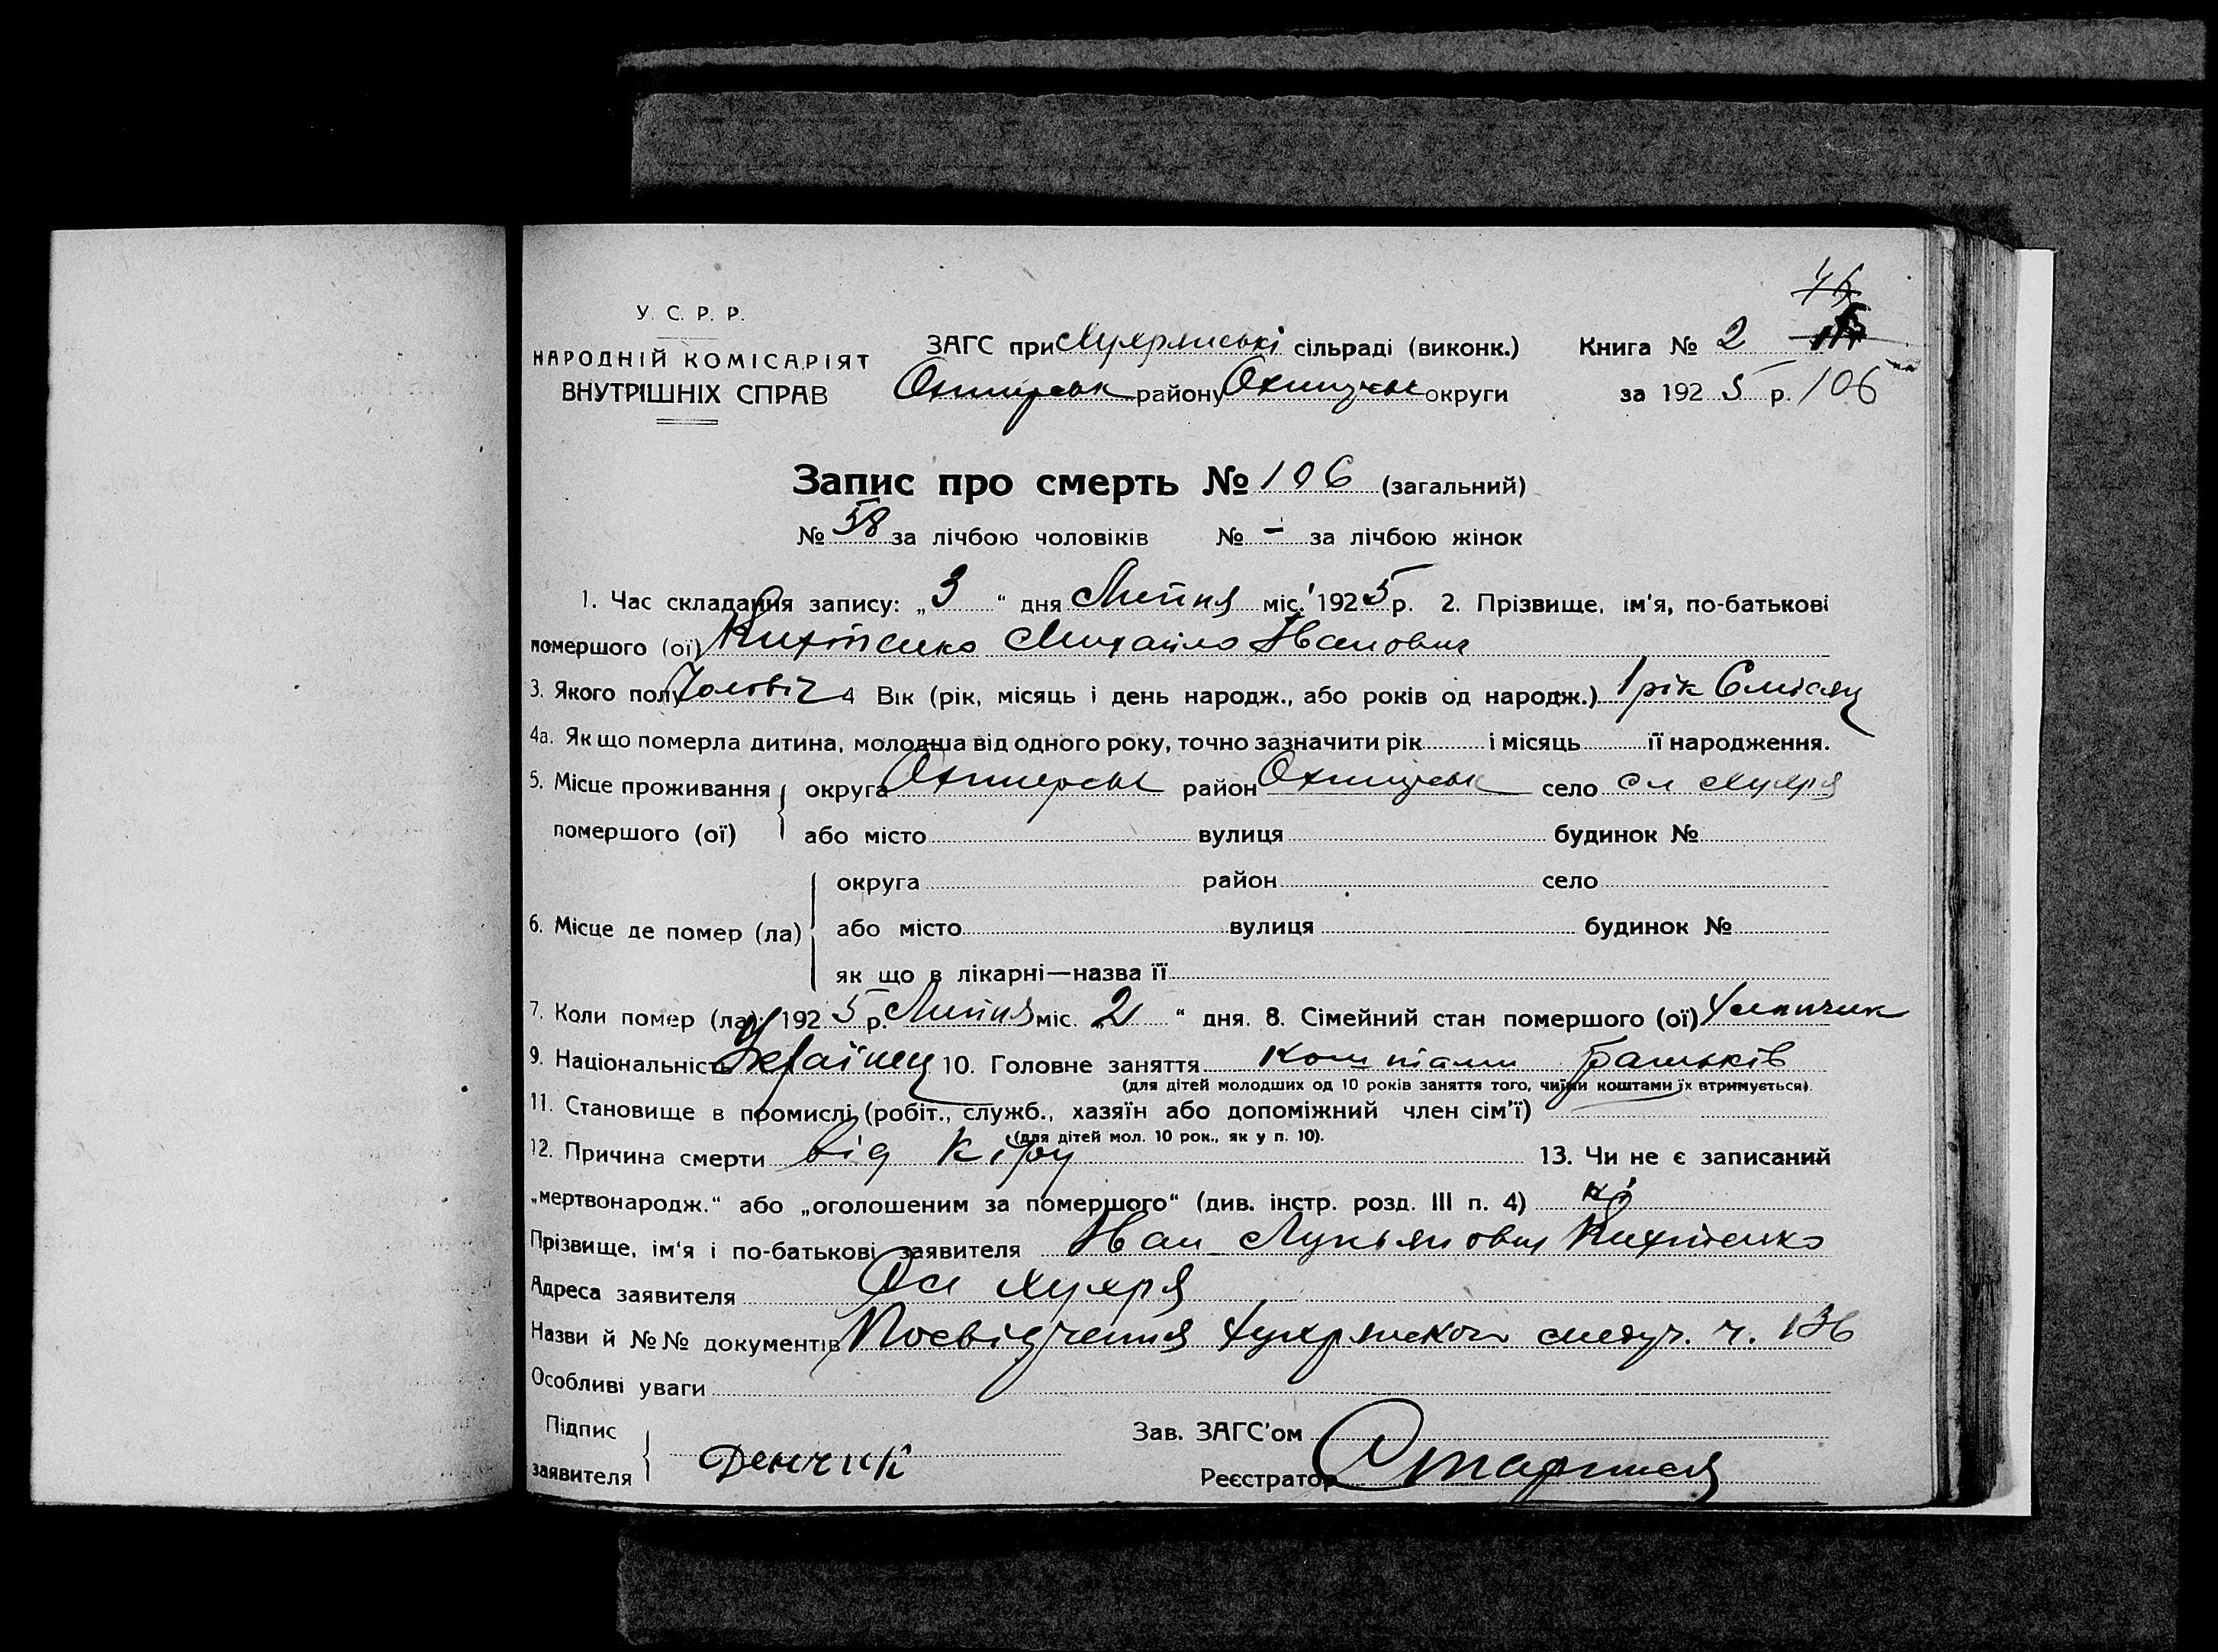 У. С. Р. Р.
НАРОДНІЙ КОМІСАРІЯТ
ВНУТРІШНІХ СПРАВ
ЗАГС при Хухрянські сільраді (виконк.)
Охтирськ району Охтирськ округи
Книга № 2
за 1925 р. 106
Запис про смерть № 106 (загальний)
№ 58 за лічбою чоловіків № - за лічбою жінок
1. Час складання запису: „3" дня Липня міс. 1925 р. 2. Прізвище, ім'я, по-батькові
помершого (ої) Кихтенко Михайло Иванович
3. Якого полу Чоловіч 4 Вік (рік, місяць і день народж., або років од народж.) 1 рік 6 місяц
4а. Як що померла дитина, молодша від одного року, точно зазначити рік і місяць її народження.
5. Місце проживання помершого (ої) округа Охтирськ район Охтирськ село сл Хухря
або місто вулиця будинок №
6. Місце де помер (ла) округа район село
або місто вулиця будинок №
як що в лікарні—назва її
7. Коли помер (ла): 1925 р. Липня міс. „2" дня. 8. Сімейний стан помершого (ої)
9. Національність Українец 10. Головне заняття коштами батьків
(для дітей молодших од 10 років заняття того, чиїми коштами їх втримується).
11. Становище в промислі (робіт., служб., хазяїн або допоміжний член сім'ї)
(для дітей мол. 10 рок., як у п. 10).
12. Причина смерти від кіру 13. Чи не є записаний
„мертвонародж." або „оголошеним за помершого" (див. інстр. розд. III п. 4) ні
Прізвище, ім'я і по-батькові заявителя Иван Лукьянович Кихтенко
Адреса заявителя сл Хухря
Назви й №№ документів Посвідчення Хухрянскои медуч. ч. 136
Особливі уваги
Підпис заявителя
Зав. ЗАГС'ом
Реєстратор